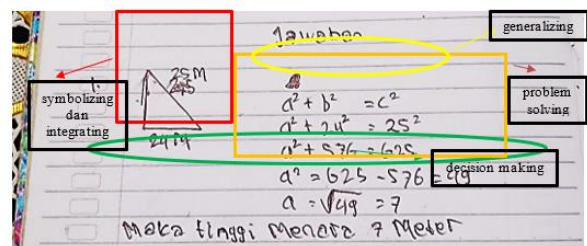 generalizing
Jawaban
1.
25 M
symbolizing dan integrating
24 M
problem solving
a² + b² = c²
a² + 24² = 25²
a² + 576 = 625
decision making
a² = 625 - 576 = 49
a = √49 = 7
Maka tinggi Menara 7 Meter